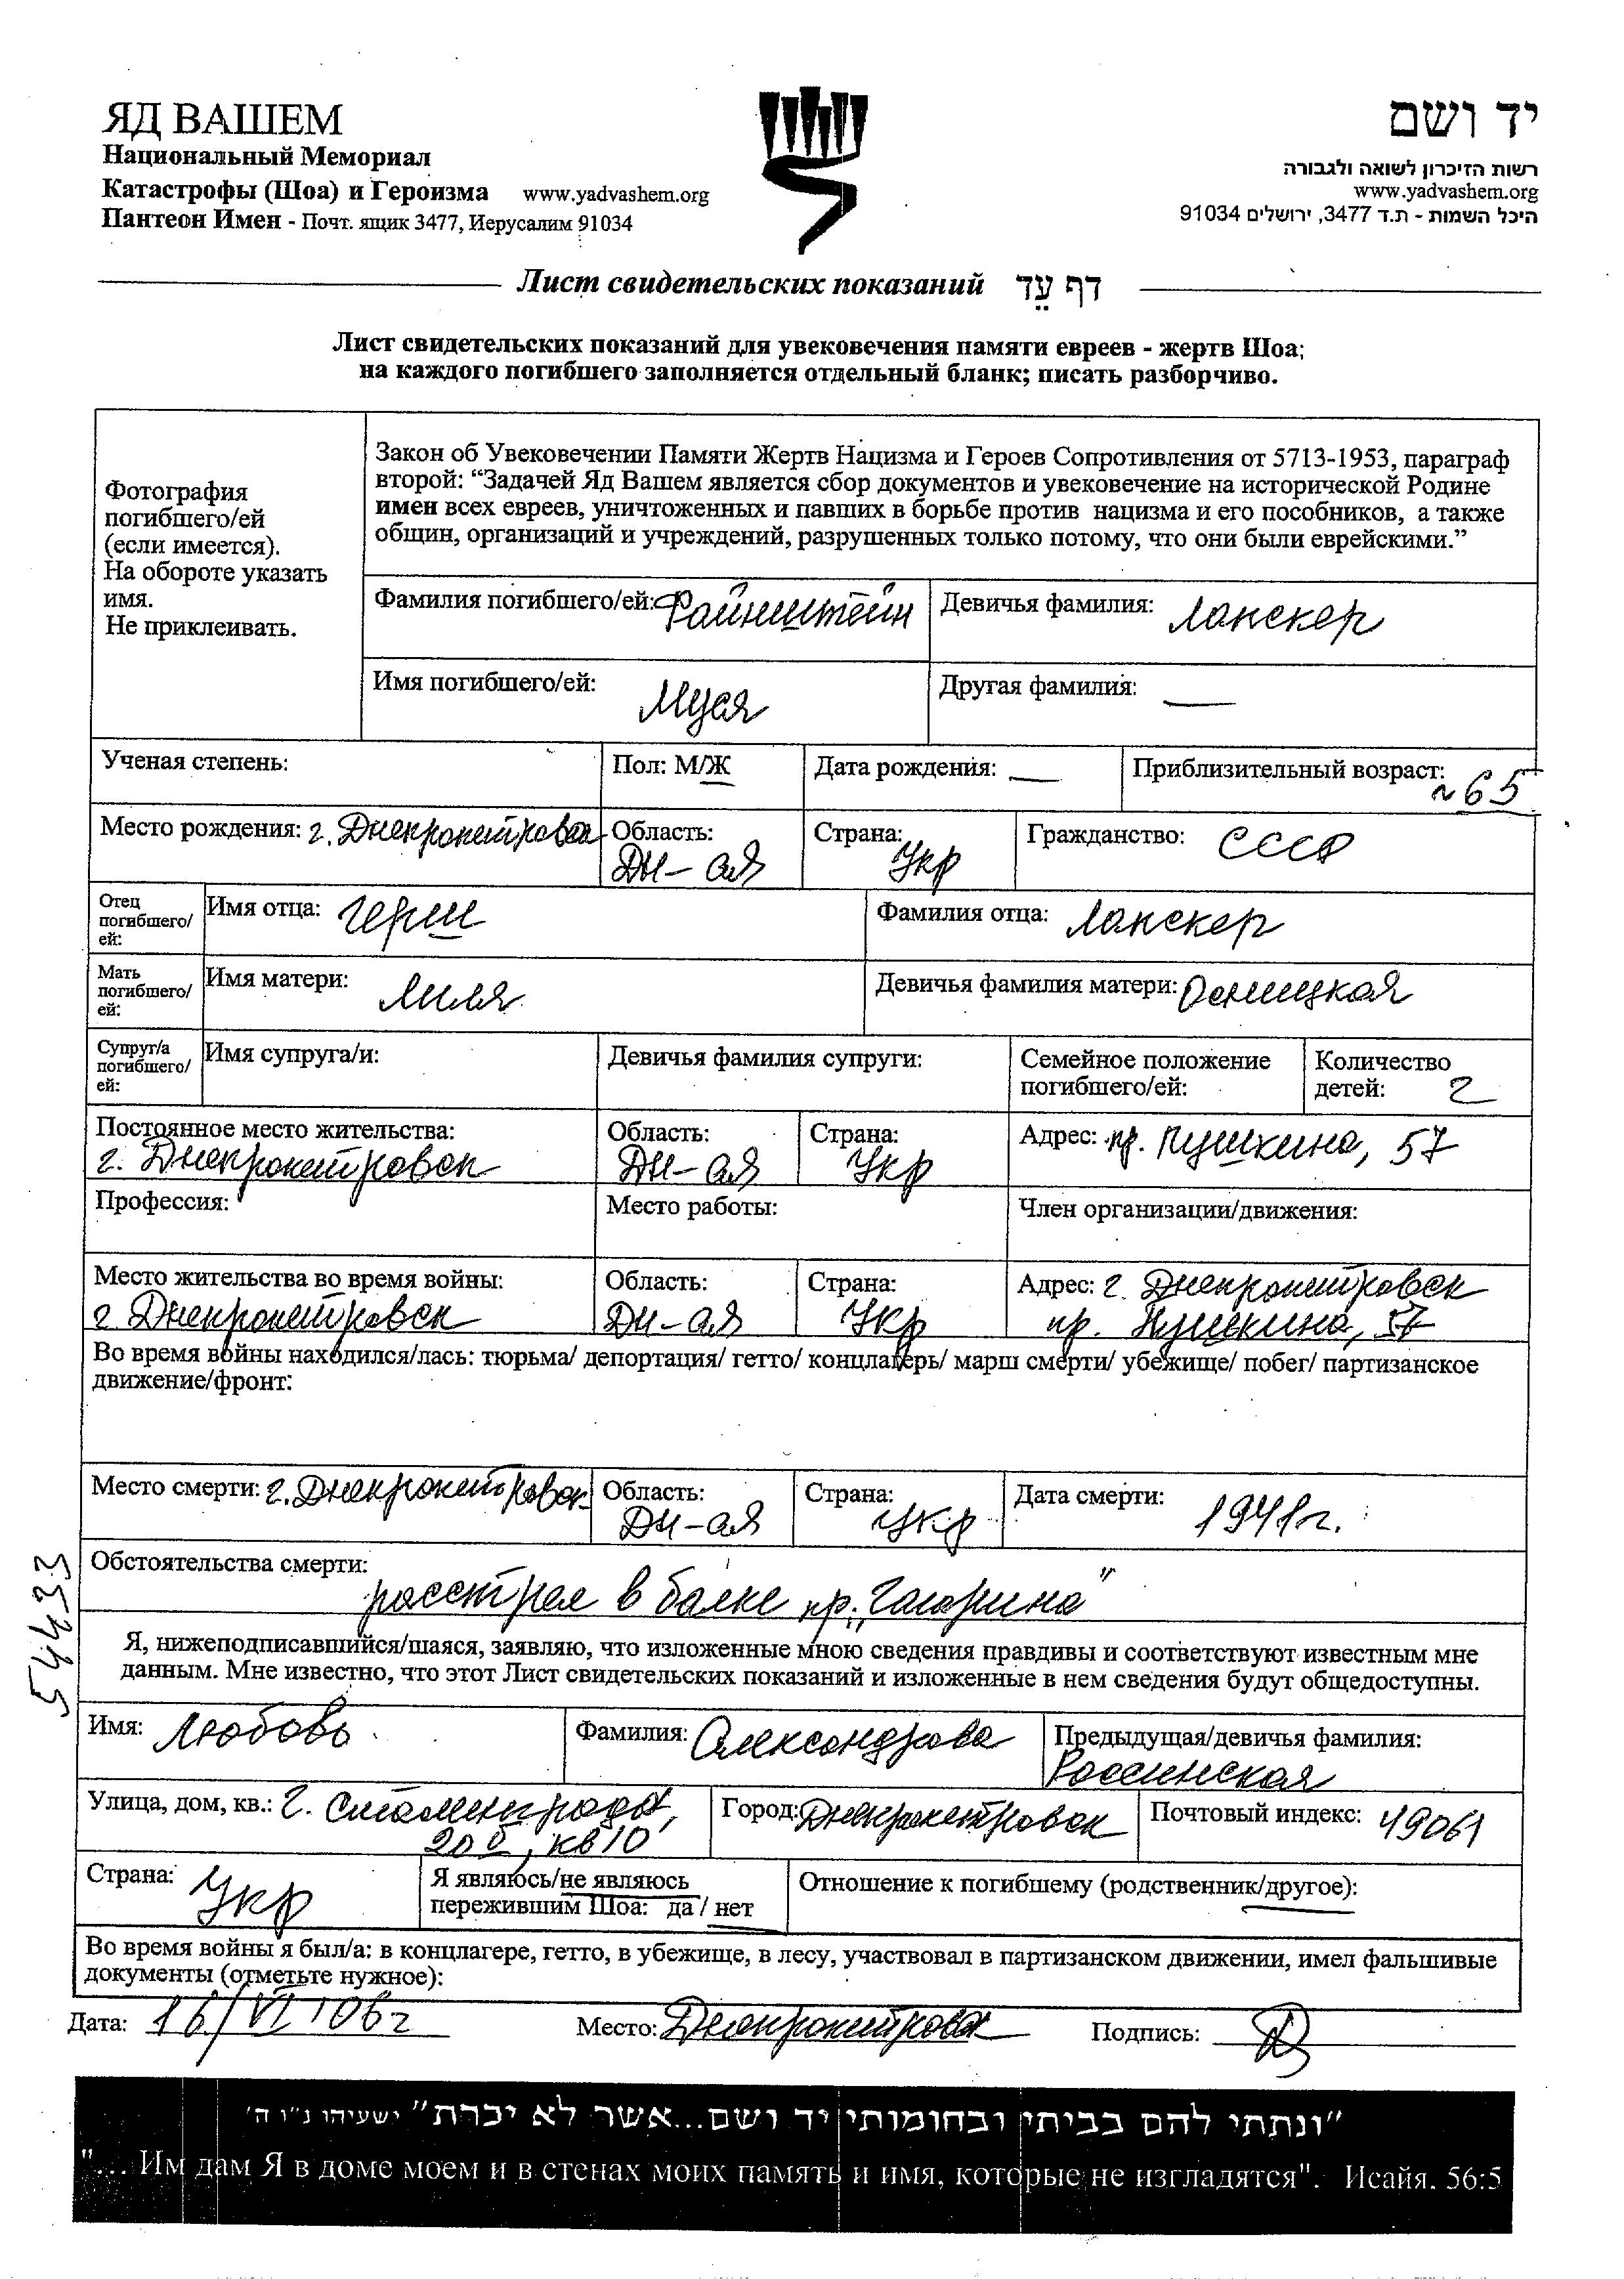 ЯД ВАШЕМ
Национальный Мемориал
Катастрофы (Шоа) и Героизма www.yadvashem.org
Пантеон Имен - Почт. ящик 3477, Иерусалим 91034
יד ושם
רשות הזיכרון לשואה ולגבורה
www.yadvashem.org
היכל השמות - ת.ד 3477, ירושלים 91034
Лист свидетельских показаний דף עֵד
Лист свидетельских показаний для увековечения памяти евреев - жертв Шоа;
на каждого погибшего заполняется отдельный бланк; писать разборчиво.
Фотография
погибшего/ей
(если имеется).
На обороте указать
имя.
Не приклеивать.
Закон об Увековечении Памяти Жертв Нацизма и Героев Сопротивления от 5713-1953, параграф
второй: “Задачей Яд Вашем является сбор документов и увековечение на исторической Родине
имен всех евреев, уничтоженных и павших в борьбе против нацизма и его пособников, а также
общин, организаций и учреждений, разрушенных только потому, что они были еврейскими.”
Фамилия погибшего/ей: Файнштейн Девичья фамилия: Ланскер
Имя погибшего/ей: Муся Другая фамилия: —
Ученая степень: Пол: М/Ж Дата рождения: — Приблизительный возраст: ~65
Место рождения: г. Днепропетровск Область: Дн-ая Страна: Укр Гражданство: СССР
Отец погибшего/ей: Имя отца: Герш Фамилия отца: Ланскер
Мать погибшего/ей: Имя матери: Лиля Девичья фамилия матери: Осницкая
Супруг/а погибшего/ей: Имя супруга/и: Девичья фамилия супруги: Семейное положение погибшего/ей: Количество детей: 2
Постоянное место жительства: г. Днепропетровск Область: Дн-ая Страна: Укр Адрес: пр. Пушкина, 57
Профессия: Место работы: Член организации/движения:
Место жительства во время войны: г Днепропетровск Область: Дн-ая Страна: Укр Адрес: г. Днепропетровск пр. Пушкина, 57
Во время войны находился/лась: тюрьма/ депортация/ гетто/ концлагерь/ марш смерти/ убежище/ побег/ партизанское
движение/фронт:
Место смерти: г. Днепропетровск Область: Дн-ая Страна: Укр Дата смерти: 1941г.
Обстоятельства смерти:
расстрел в балке пр. „Гагарина”
54433
Я, нижеподписавшийся/шаяся, заявляю, что изложенные мною сведения правдивы и соответствуют известным мне
данным. Мне известно, что этот Лист свидетельских показаний и изложенные в нем сведения будут общедоступны.
Имя: Любовь Фамилия: Александрова Предыдущая/девичья фамилия: Россинская
Улица, дом, кв.: Г. Сталинграда, 20 , кв 10 Город: Днепропетровск Почтовый индекс: 49061
Страна: Укр Я являюсь/не являюсь пережившим Шоа: да / нет Отношение к погибшему (родственник/другое):
Во время войны я был/а: в концлагере, гетто, в убежище, в лесу, участвовал в партизанском движении, имел фальшивые
документы (отметьте нужное):
Дата: 16/VI 106г Место: Днепропетровск Подпись:
"ונתתי להם בביתי ובחומותי יד ושם...אשר לא יכרת" ישעיהו נ"ו ה'
"... Им дам Я в доме моем и в стенах моих память и имя, которые не изгладятся". Исайя. 56:5